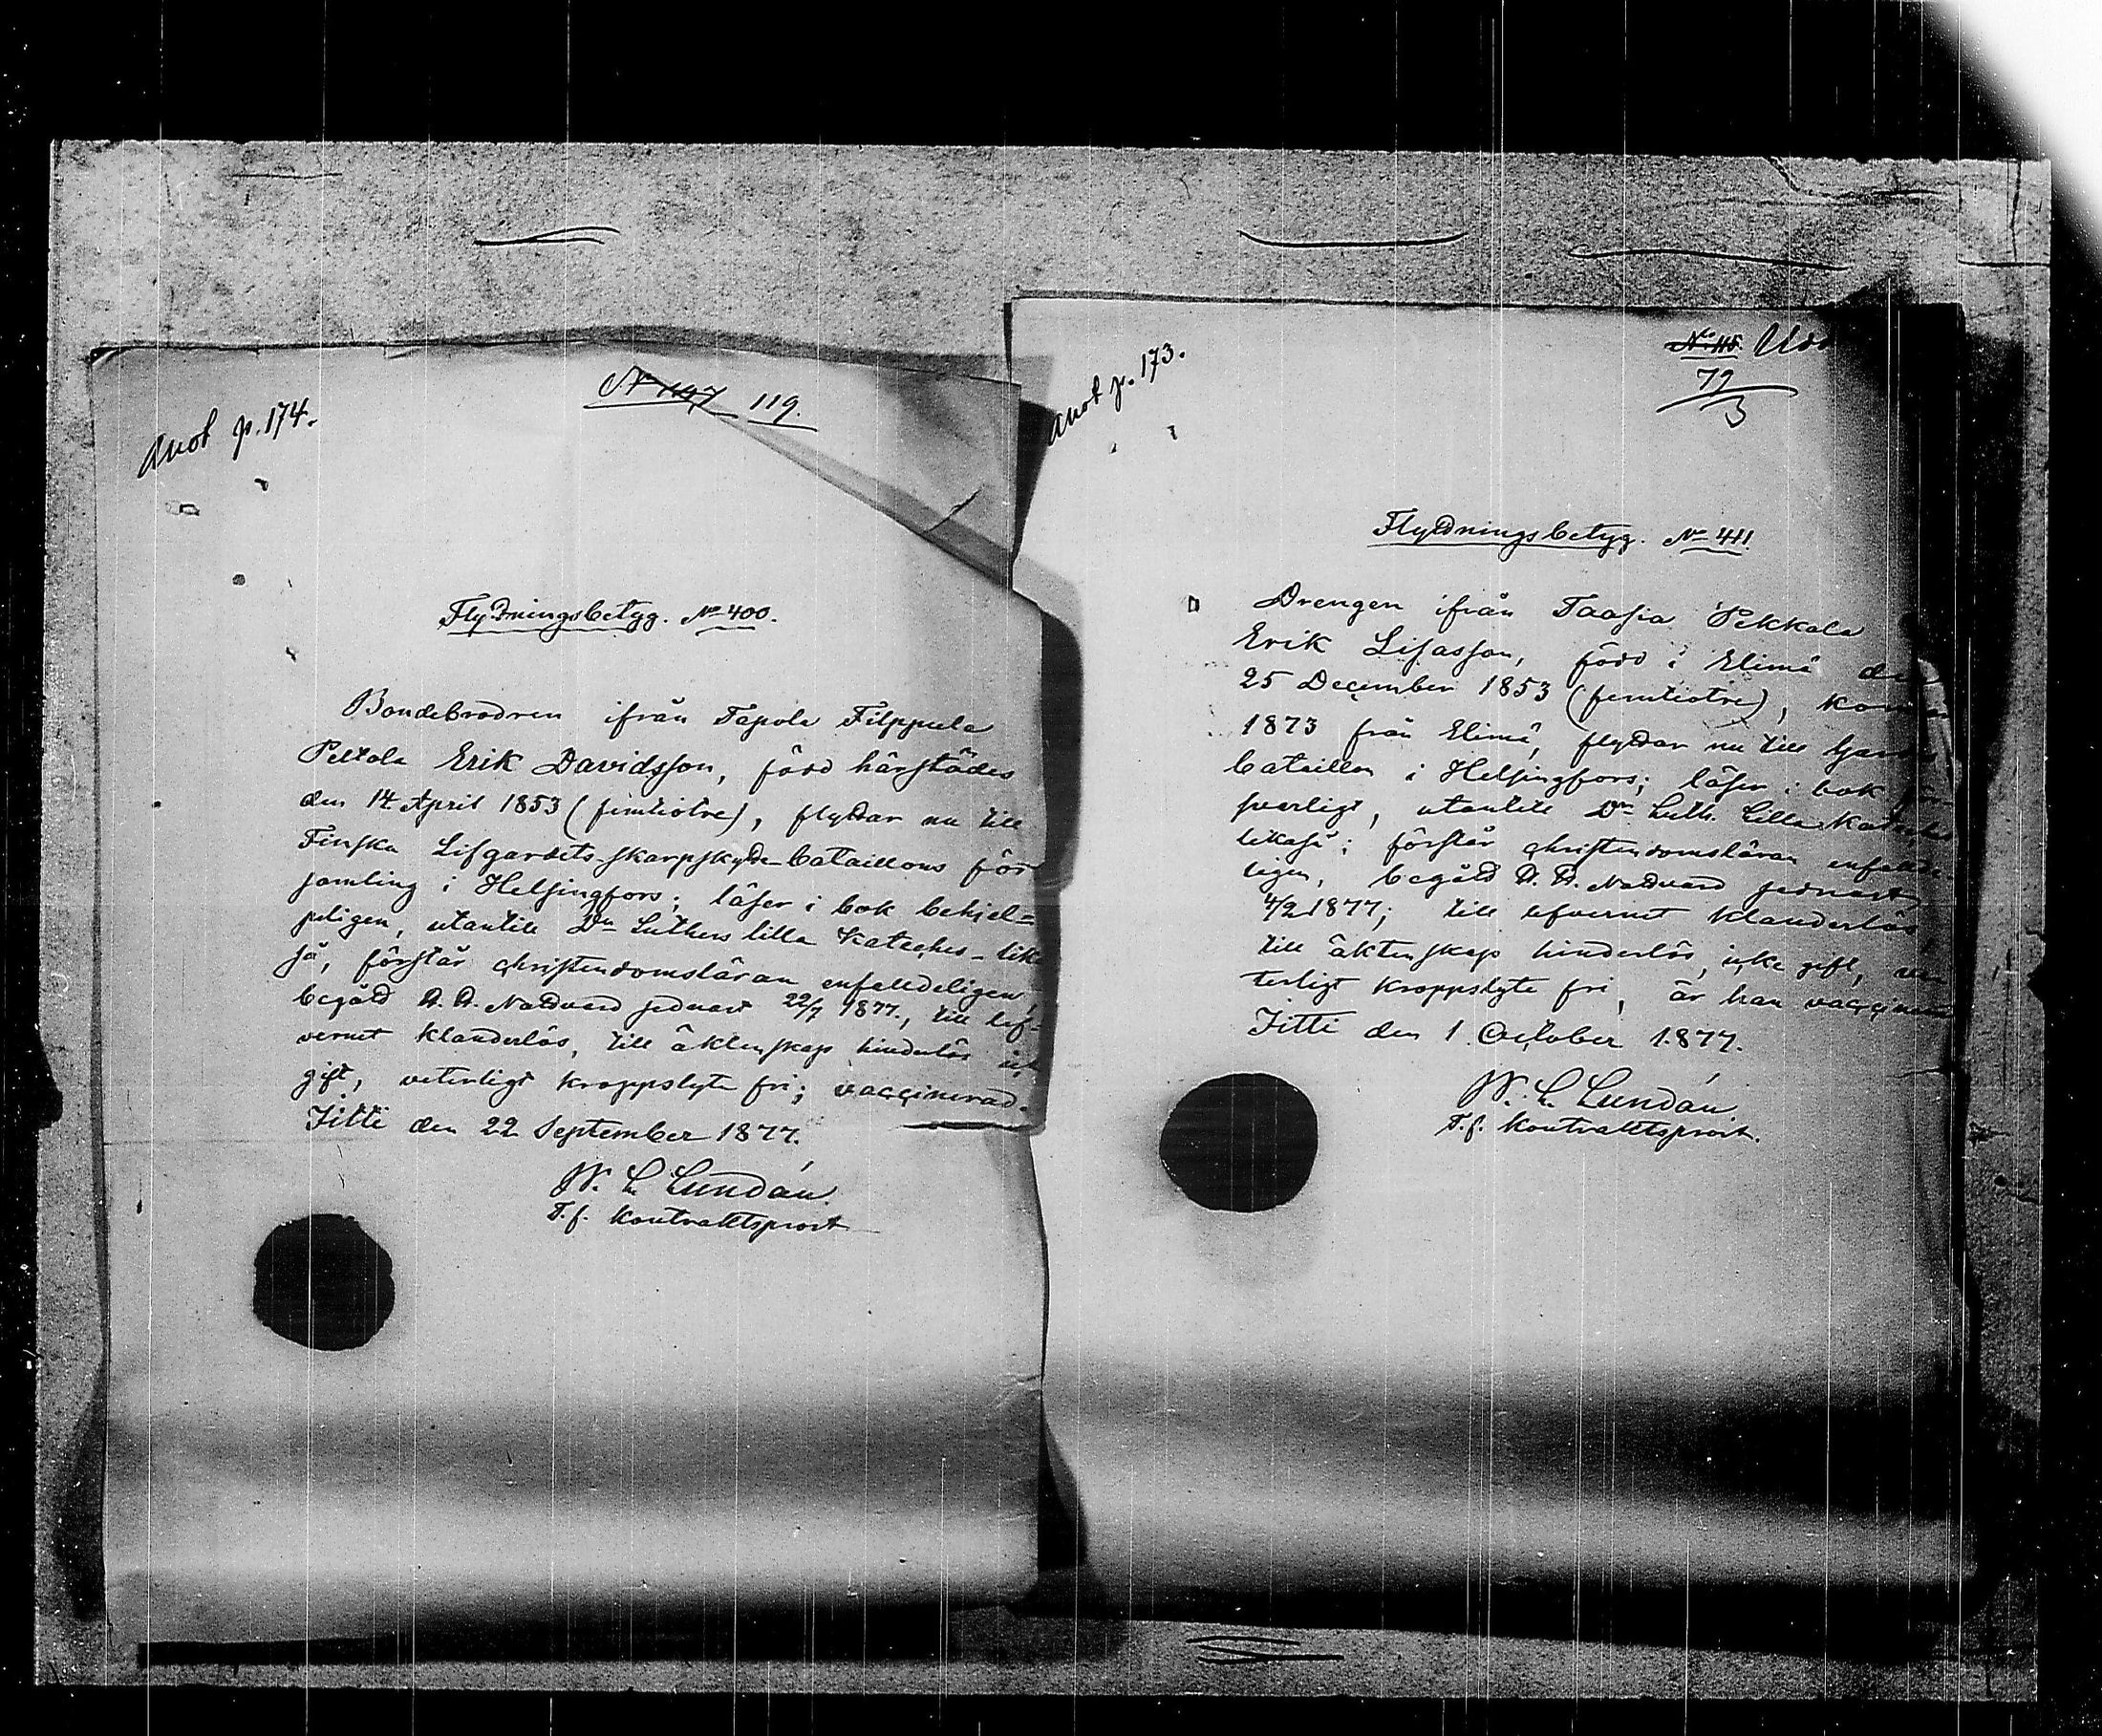 Anot p. 174.
No 147 119.
Flyttningsbetyg. No 400.
Bondebrodren ifrån Tapola Filppula
Peltola Erik Davidsson, född härstädes
den 14 April 1853 (femtiotre), flyttar nu till
Finska Lifgardets skarpskytte bataillons för
samling i Helsingfors; läser i bok behjel=
peligen, utantill Dr Luthers lilla Kateches lika
så, förstår christendomsläran enfaldeligen,
begått H. H. Nattvard sednast 22/7 1877., till lef=
vernet klanderlös, till äktenskap hinderlös ick
gift, veterligt kroppslyte fri; vaccinerad.
Jitti den 22 September 1877.
W. L. Lundán.
T.f. Kontraktsprost
Anot p. 173.
No 115.
79
3
Flyttningsbetyg. No 411.
Drengen ifrån Taasia Pekkola
Erik Lisasson, född i Elimä den
25 December 1853 (femtiotre), kommen
1873 från Elimä, flyttar nu till
bataillon i Helsingfors; läser i bok för
svarligt, utantill Dr Luth. Lilla Kateches
likaså; förstår christendomsläran enfalde
ligen, begått H. H. Nattvard sednast
4/2 1877; till lefvernet klanderlös,
till äktenskap hinderlös, icke gift, ve
terligt kroppslyte fri, är han vaccinerad
Jitti den 1 October 1877.
W. L. Lundán.
T.f. Kontraktsprost.